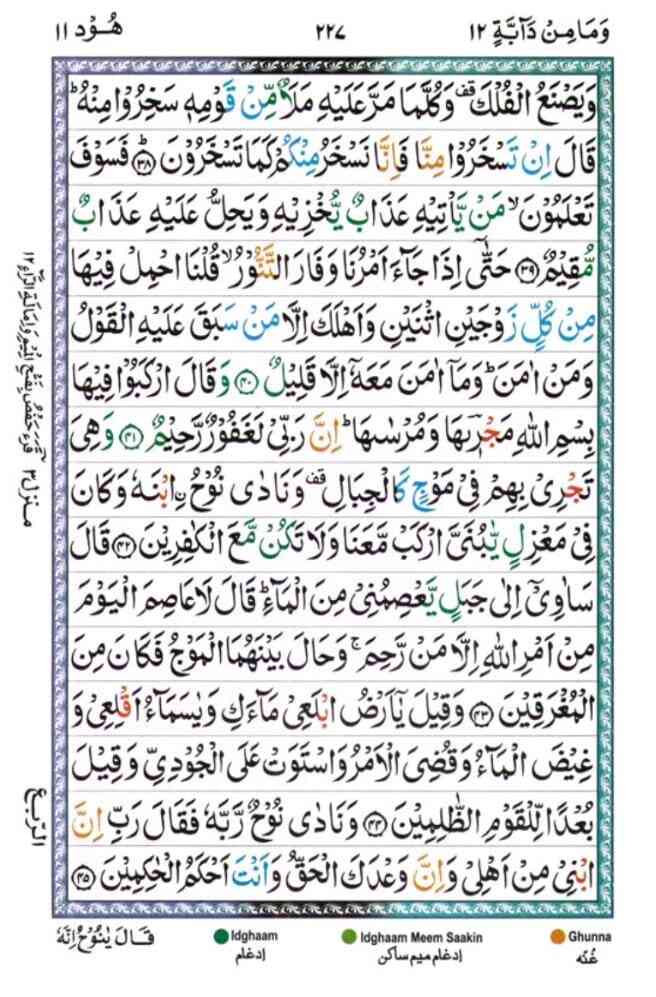 وَمَا مِنْ دَآبَّةٍ ١٢ ٢٢٧ هُوْد ١١
وَيَصْنَعُ الْفُلْكَ ۫ وَكُلَّمَا مَرَّ عَلَيْهِ مَلَاٌ مِّنْ قَوْمِهٖ سَخِرُوْا مِنْهُ ؕ
قَالَ اِنْ تَسْخَرُوْا مِنَّا فَاِنَّا نَسْخَرُ مِنْكُمْ كَمَا تَسْخَرُوْنَ ؕ ﴿۳۸﴾ فَسَوْفَ
تَعْلَمُوْنَ ۙ مَنْ يَّاْتِيْهِ عَذَابٌ يُّخْزِيْهِ وَيَحِلُّ عَلَيْهِ عَذَابٌ
مُّقِيْمٌ ﴿۳۹﴾ حَتّٰۤى اِذَا جَآءَ اَمْرُنَا وَفَارَ التَّنُّوْرُ ۙ قُلْنَا احْمِلْ فِيْهَا
مِنْ كُلٍّ زَوْجَيْنِ اثْنَيْنِ وَاَهْلَكَ اِلَّا مَنْ سَبَقَ عَلَيْهِ الْقَوْلُ
وَمَنْ اٰمَنَ ؕ وَمَاۤ اٰمَنَ مَعَهٗۤ اِلَّا قَلِيْلٌ ﴿۴۰﴾ وَقَالَ ارْكَبُوْا فِيْهَا
بِسْمِ اللّٰهِ مَجْرٖىهَا وَمُرْسٰىهَا ؕ اِنَّ رَبِّيْ لَغَفُوْرٌ رَّحِيْمٌ ﴿۴۱﴾ وَهِيَ
تَجْرِيْ بِهِمْ فِيْ مَوْجٍ كَالْجِبَالِ ۫ وَنَادٰى نُوْحُ ۨ ابْنَهٗ وَكَانَ
فِيْ مَعْزِلٍ يّٰبُنَيَّ ارْكَبْ مَّعَنَا وَلَا تَكُنْ مَّعَ الْكٰفِرِيْنَ ﴿۴۲﴾ قَالَ
سَاٰوِيْۤ اِلٰى جَبَلٍ يَّعْصِمُنِيْ مِنَ الْمَآءِ ؕ قَالَ لَا عَاصِمَ الْيَوْمَ
مِنْ اَمْرِ اللّٰهِ اِلَّا مَنْ رَّحِمَ ۚ وَحَالَ بَيْنَهُمَا الْمَوْجُ فَكَانَ مِنَ
الْمُغْرَقِيْنَ ﴿۴۳﴾ وَقِيْلَ يٰۤاَرْضُ ابْلَعِيْ مَآءَكِ وَيٰسَمَآءُ اَقْلِعِيْ وَ
غِيْضَ الْمَآءُ وَقُضِيَ الْاَمْرُ وَاسْتَوَتْ عَلَى الْجُوْدِيِّ وَقِيْلَ
بُعْدًا لِّلْقَوْمِ الظّٰلِمِيْنَ ﴿۴۴﴾ وَنَادٰى نُوْحٌ رَّبَّهٗ فَقَالَ رَبِّ اِنَّ
ابْنِيْ مِنْ اَهْلِيْ وَاِنَّ وَعْدَكَ الْحَقُّ وَاَنْتَ اَحْكَمُ الْحٰكِمِيْنَ ﴿۴۵﴾
منزل ٣
الربع
قَالَ يٰنُوْحُ اِنَّهٗ
Idghaam
ادغام
Idghaam Meem Saakin
ادغام میم ساکن
Ghunna
غنّه